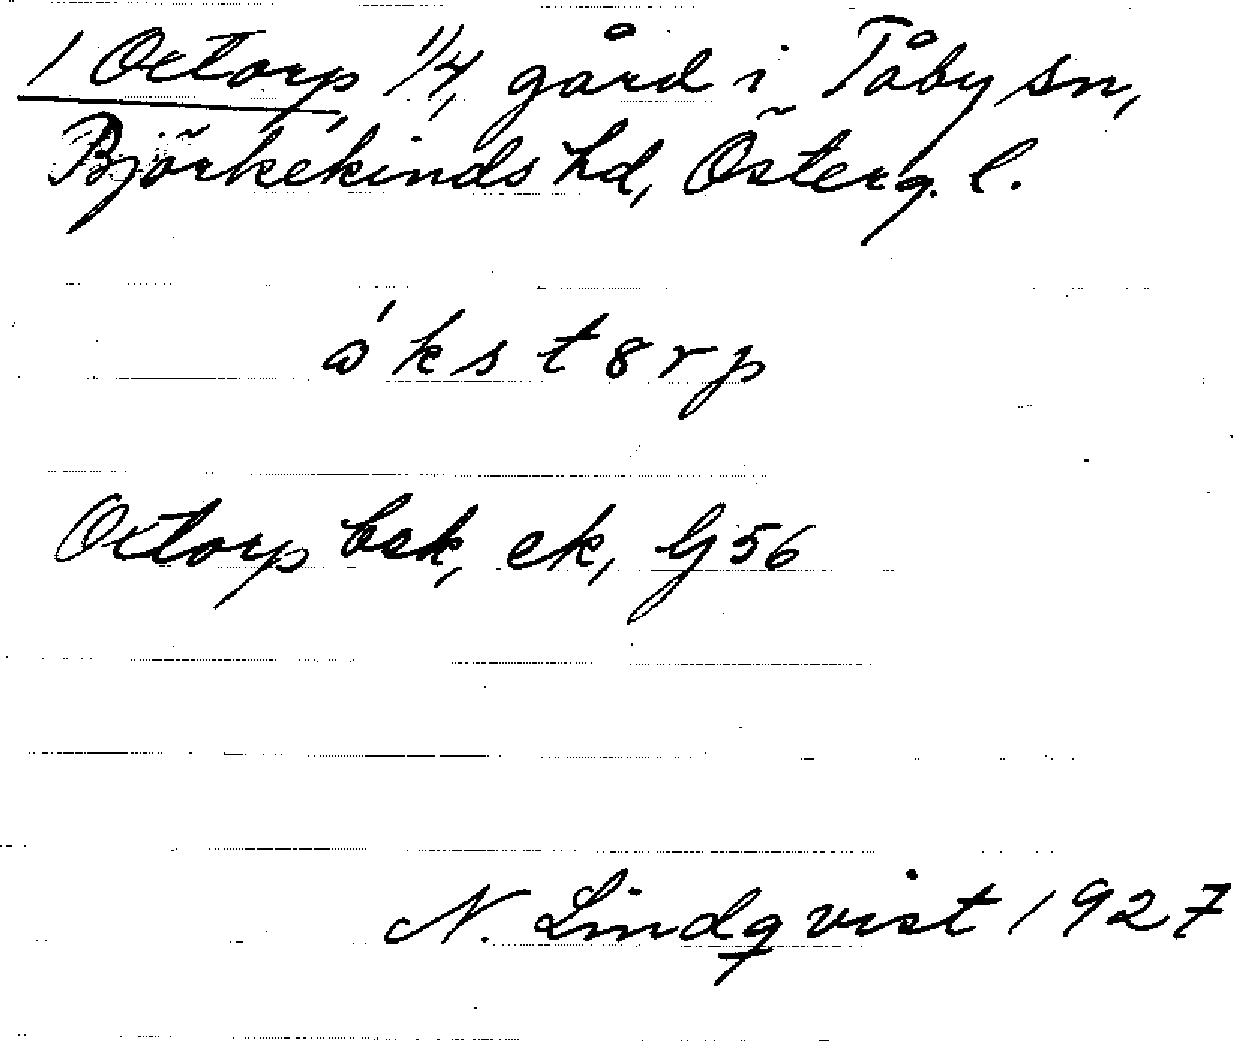 1 Octorp, 1/4, gård i Tåby sn,
Björkekinds hd, Österg. l.
ákstȣrp
Octorp bek, ek, G 56
N. Lindqvist 1927